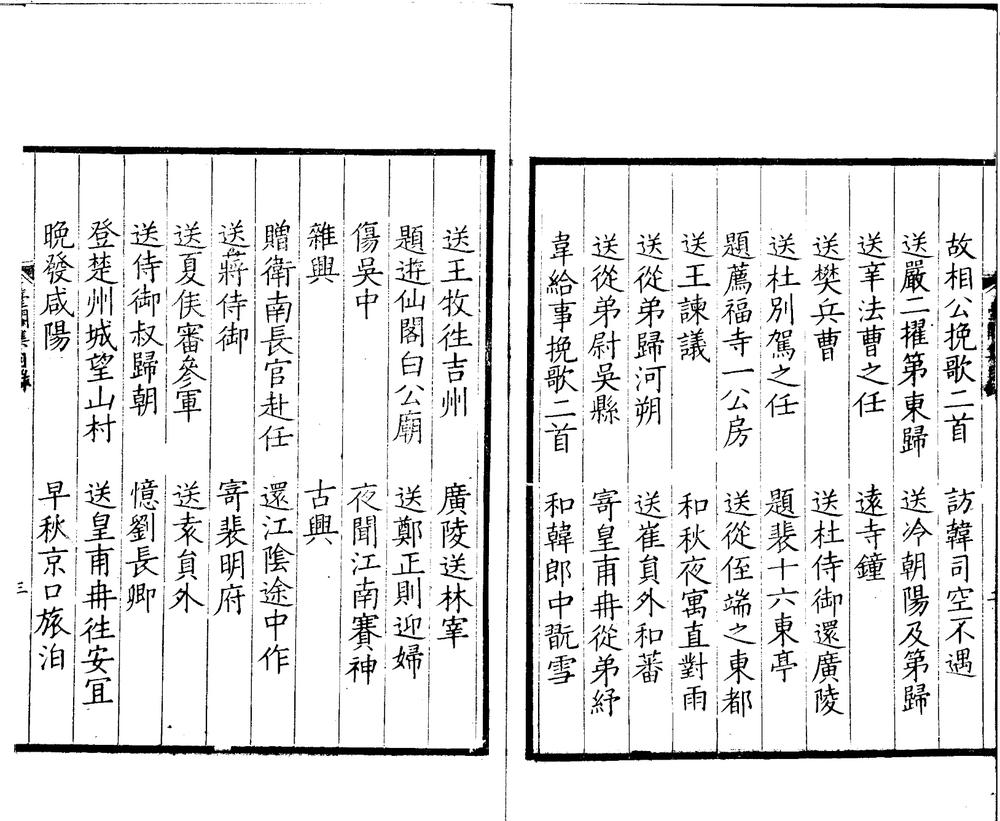 故相公挽歌二首　訪韓司空不遇
送嚴二擢第東歸　送冷朝陽及第歸
送辛法曹之任　遠寺鐘
送樊兵曹　送杜侍御還廣陵
送杜別駕之任　題裴十六東亭
題薦福寺一公房　送從侄端之東都
送王諫議　和秋夜寓直對雨
送從弟歸河朔　送崔貟外和蕃
送從弟尉吳縣　寄皇甫冉從弟紓
韋給事挽歌二首　和韓郎中翫雪
送王牧徃吉州　廣陵送林宰
題逰仙閣白公廟　送鄭正則迎婦
傷吳中　夜聞江南賽神
雜興　古興
贈衛南長官赴任　還江隂途中作
送蔣侍御　寄裴明府
送夏侯審參軍　送袁貟外
送侍御叔歸朝　憶劉長卿
登楚州城望山村　送皇甫冉徃安宜
晚發咸陽　早秋京口旅泊
三